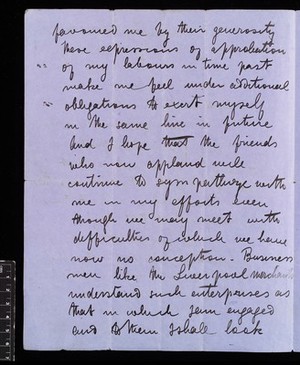 favoured me by their generosity
these expressions of approbation
of my labours in time past
make me feel under additional
obligations to exert myself
in the same line in future
and I hope that the friends
who now applaud will
continue to sympathize with
me in my efforts even
though we may meet with
difficulties of which we have
now no conception. Business
men like the Liverpool merchants
understand such enterprises as
that in which I am engaged
and to them I shall look